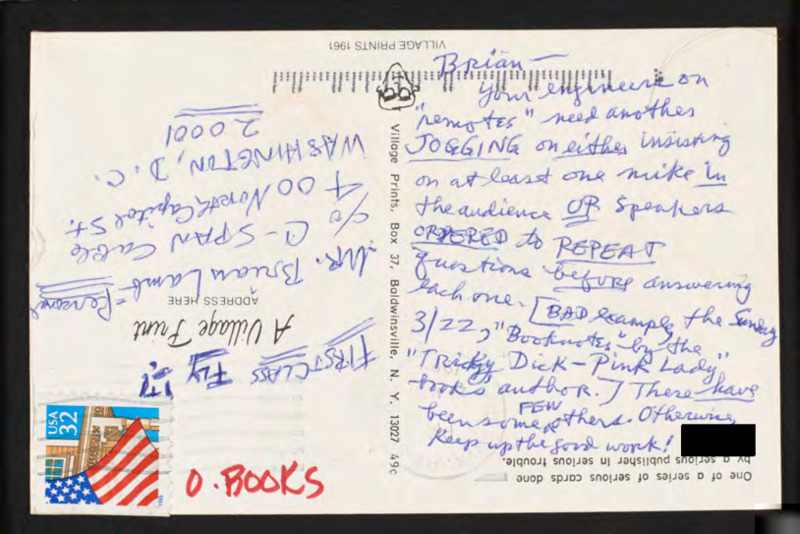 Brian—
Your engineers on
"remotes" need another
JOGGING on either insisting
on at least one mike in
the audience OR speakers
ORDERED to REPEAT
questions before answering
each one. [BAD example, the Sunday
3/22, "Booknotes" by the
"Tricky Dick – Pink Lady"
book's author.] There have
been some FEW others. Otherwise,
Keep up the good work!
One of a series of serious cards done
by a serious publisher in serious trouble.
Village Prints, Box 37, Baldwinsville, N. Y. 13027 49¢
VILLAGE PRINTS 1961
FIRST CLASS FLY IT!
A Village Print
ADDRESS HERE
Mr. Brian Lamb – Personal
c/o C-SPAN Cable
400 North Capitol St.
WASHINGTON, D.C.
20001
USA
32
O. BOOKS